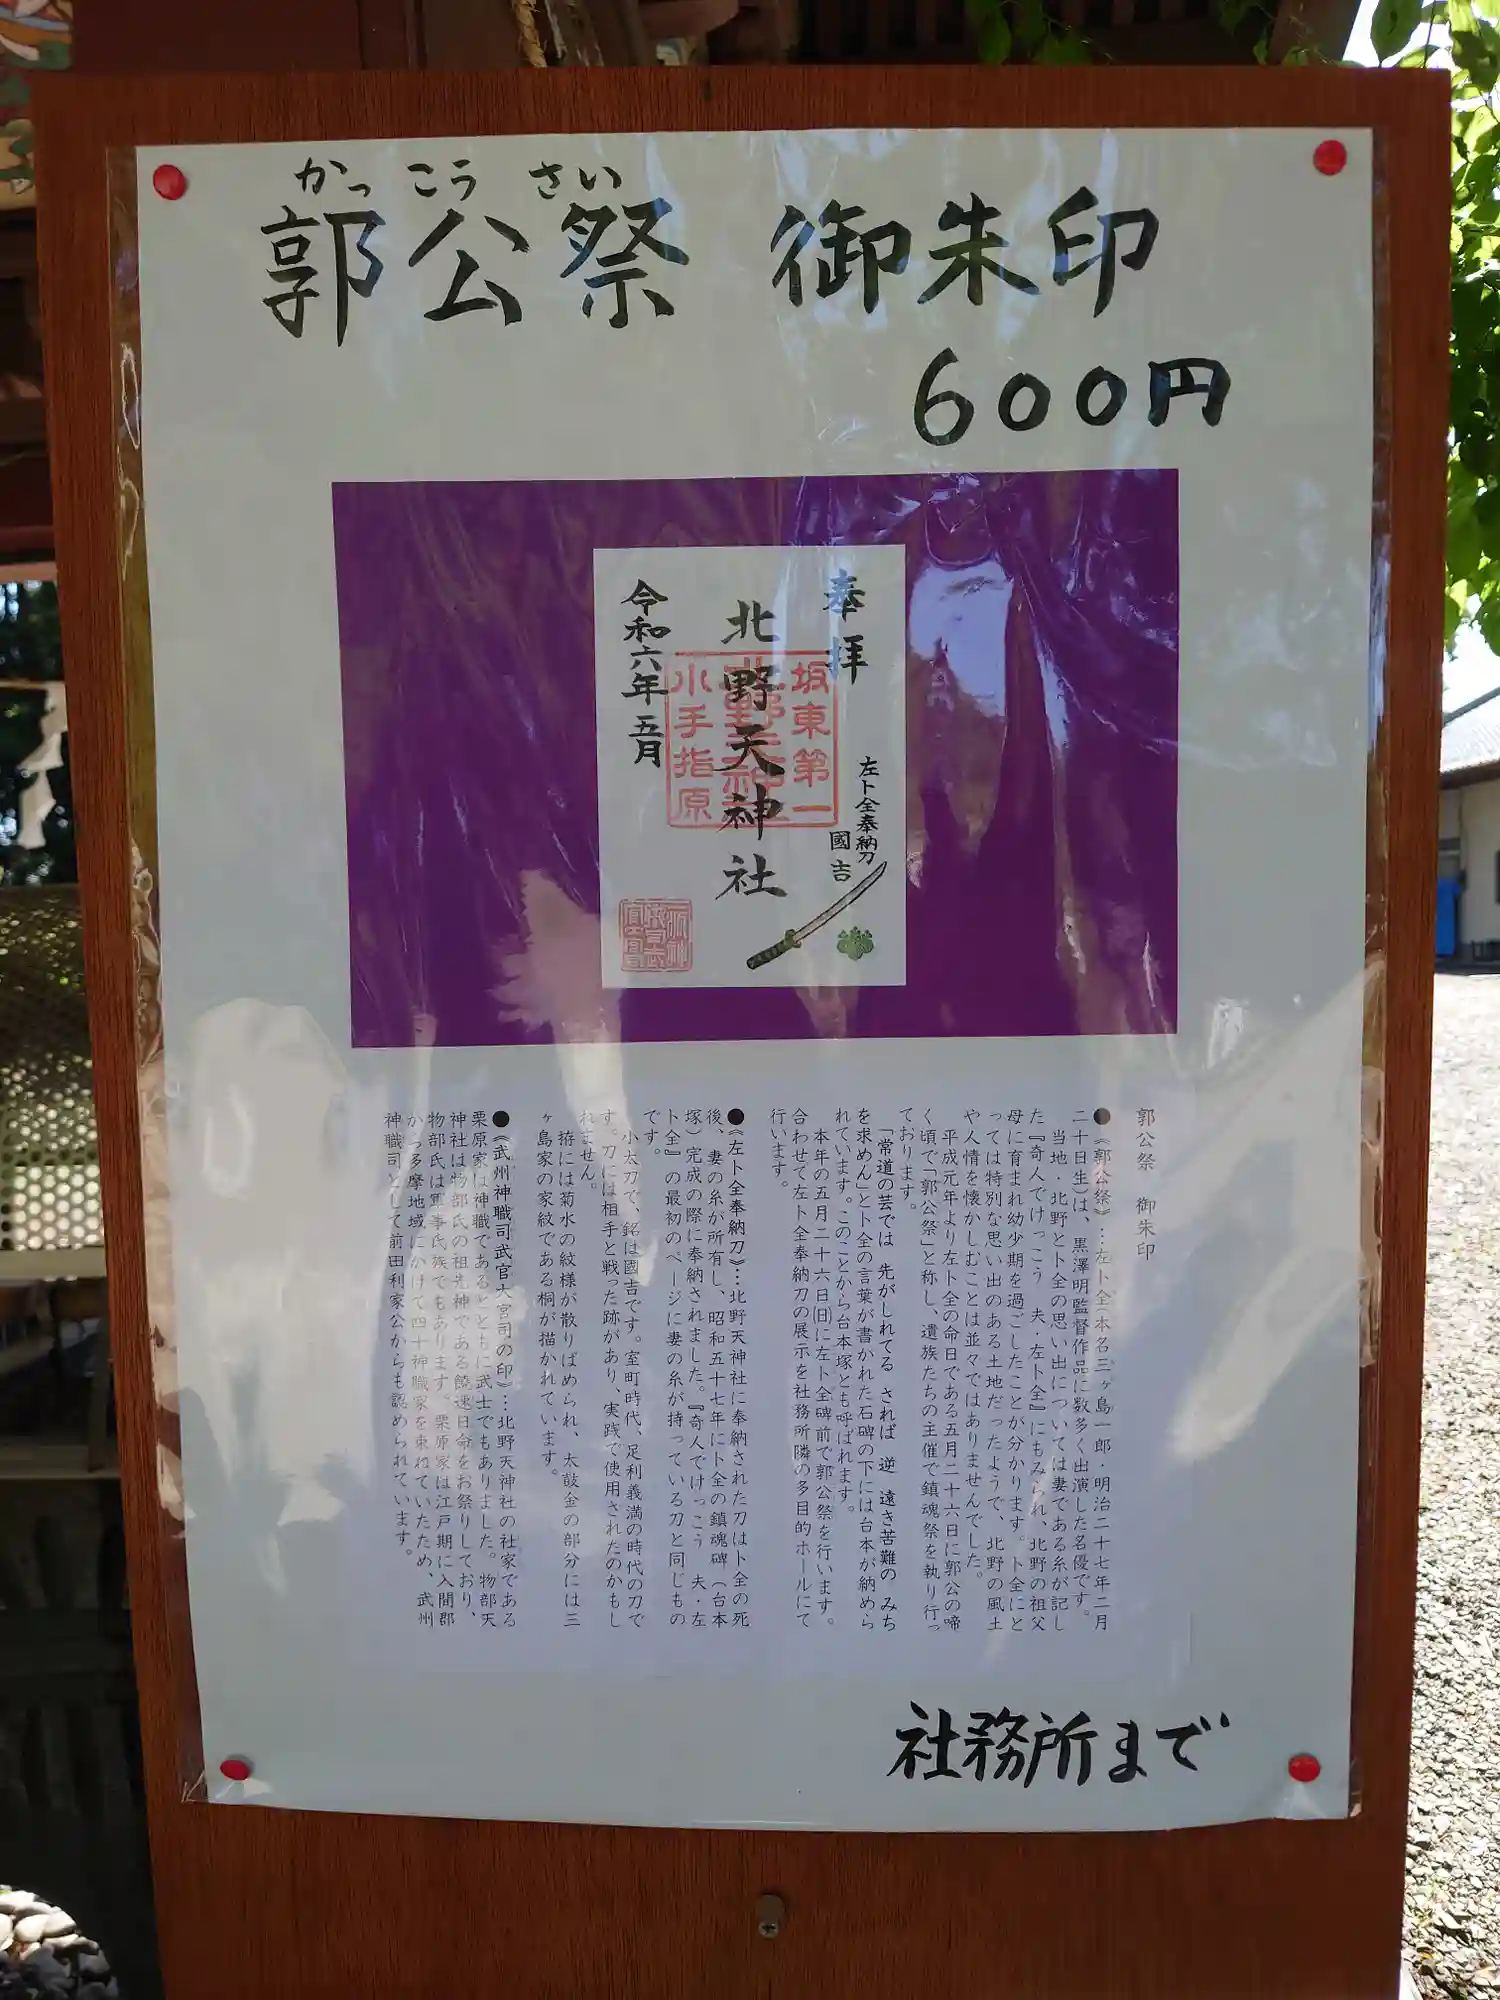 かっこうさい
郭公祭 御朱印
600円
奉拝
左卜全奉納刀
國吉
坂東第一
北野天神社
小手指原
令和六年五月
郭公祭 御朱印
●《郭公祭》…左卜全(本名三ヶ島一郎・明治二十七年二月
二十日生)は、黒澤明監督作品に数多く出演した名優です。
当地・北野と卜全の思い出については妻である糸が記し
た『奇人でけっこう 夫・左卜全』にもみられ、北野の祖父
母に育まれ幼少期を過ごしたことが分かります。卜全にと
っては特別な思い出のある土地だったようで、北野の風土
や人情を懐かしむことは並々ではありませんでした。
平成元年より左卜全の命日である五月二十六日に郭公の啼
く頃で「郭公祭」と称し、遺族たちの主催で鎮魂祭を執り行っ
ております。
「常道の芸では 先がしれてる されば 逆 遠き苦難の みち
を求めん」と卜全の言葉が書かれた石碑の下には台本が納めら
れています。このことから台本塚とも呼ばれます。
本年の五月二十六日(日)に左卜全碑前で郭公祭を行います。
合わせて左卜全奉納刀の展示を社務所隣の多目的ホールにて
行います。
●《左卜全奉納刀》…北野天神社に奉納された刀は卜全の死
後、妻の糸が所有し、昭和五十七年に卜全の鎮魂碑(台本
塚)完成の際に奉納されました。『奇人でけっこう 夫・左
卜全』の最初のページに妻の糸が持っている刀と同じもの
です。
小太刀で、銘は國吉です。室町時代、足利義満の時代の刀で
す。刀には相手と戦った跡があり、実践で使用されたのかもし
れません。
拵には菊水の紋様が散りばめられ、太鼓金の部分には三
ヶ島家の家紋である桐が描かれています。
●《武州神職司武官大宮司の印》…北野天神社の社家である
栗原家は神職であるとともに武士でもありました。物部天
神社は物部氏の祖先神である饒速日命をお祭りしており、
物部氏は軍事氏族でもあります。栗原家は江戸期に入間郡
から多摩地域にかけて四十神職家を束れていたため、武州
神職司として前田利家公からも認められています。
社務所まで